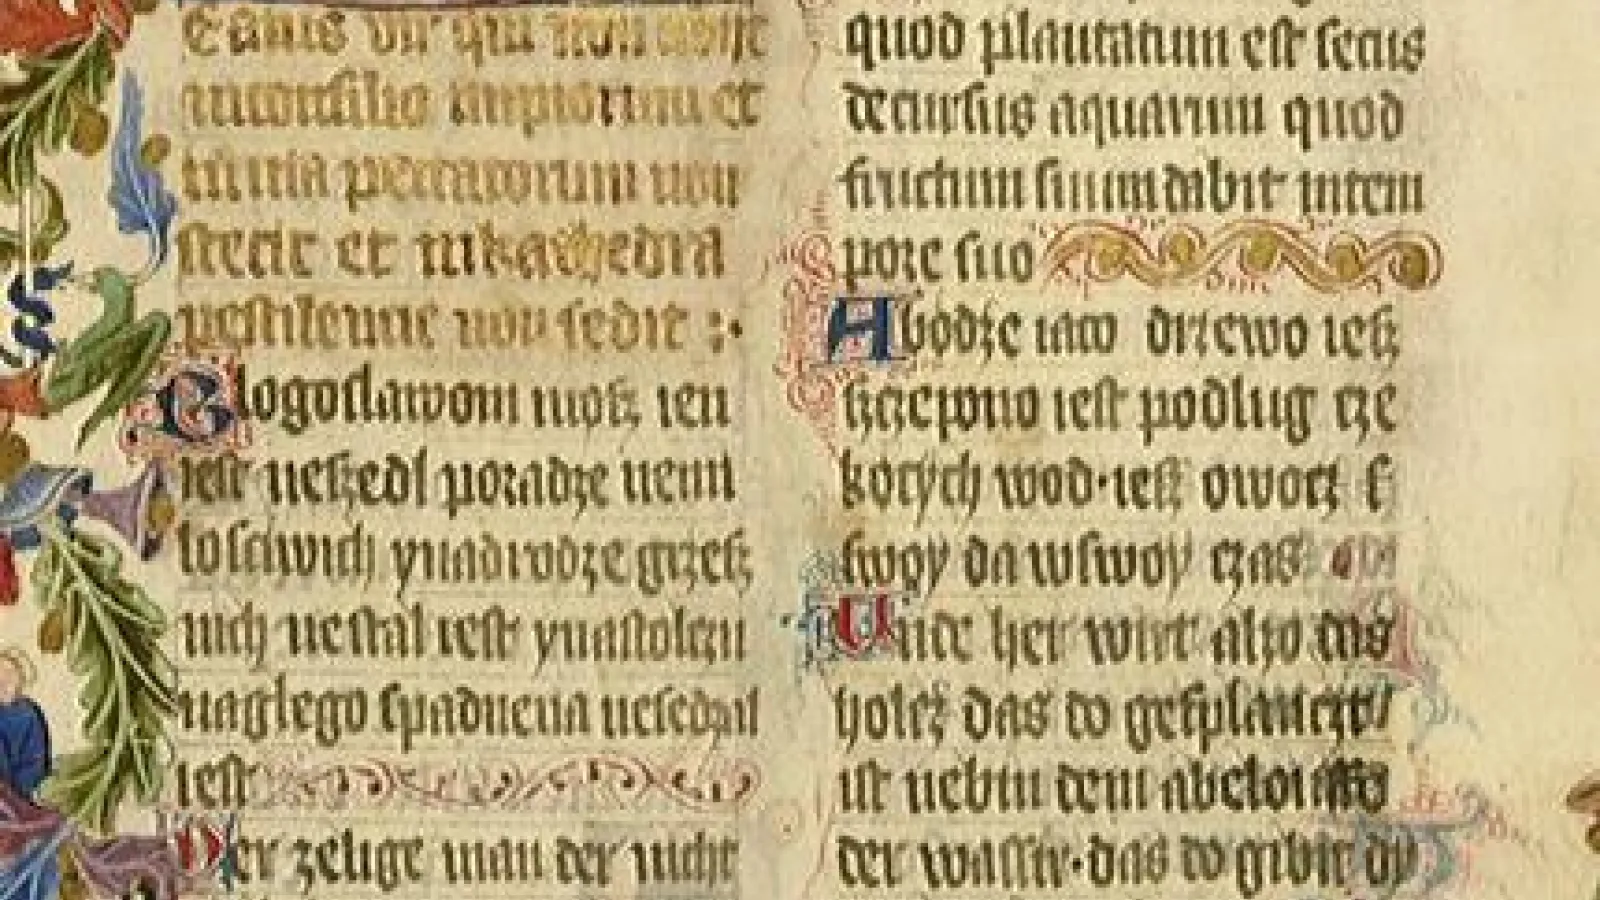 eatus vir qui non abijt
inconsilio impiorum et
inuia peccatorum non
stetit et inkathedra
pestilencie non sedit :·
Blogoslawoni mősz ien
iest neszedl poradze nemi
losciwich ynadrodze grzesz
nich nestal iest ynastolczu
naglego spadnena nesedzal
iest
Der zelige man der nicht
quod plantatum est secus
decursus aquarum quod
fructum suum dabit intem
pore suo
A bődze iaco drzewo iesz
szczepono iest podlug cze
kőcych wod·iesz owocz
swoy da wswoy czas
Unde her wirt alzo das
holcz das do gesplanczt
ist nebin dem
der wassir·das do gibit